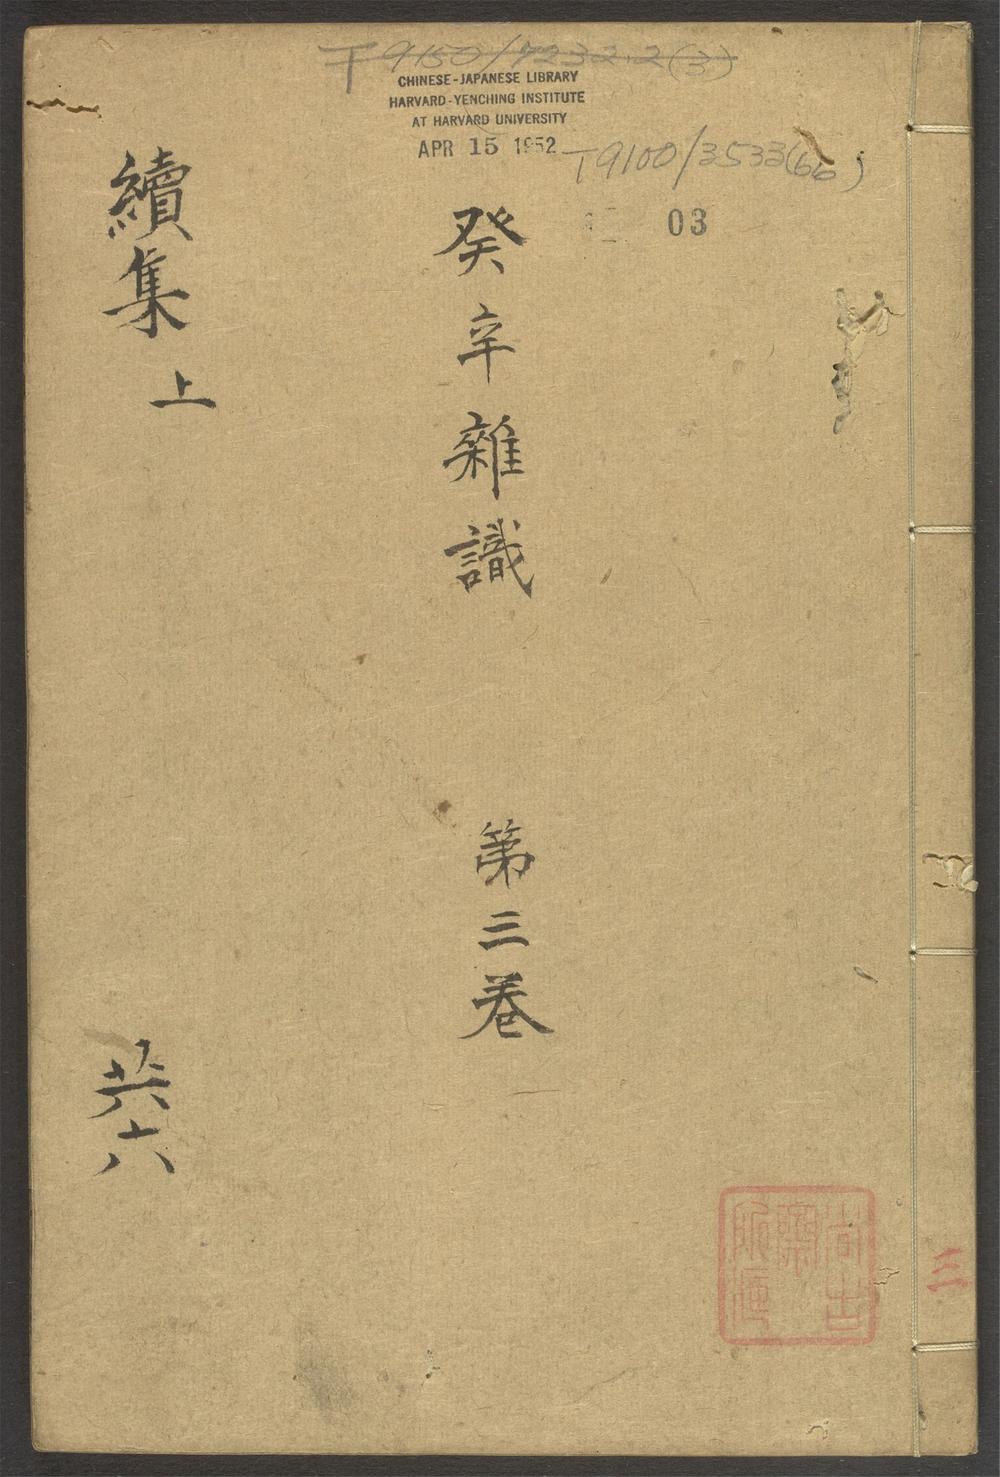 T 9150/7232.2(3)
CHINESE-JAPANESE LIBRARY
HARVARD-YENCHING INSTITUTE
AT HARVARD UNIVERSITY
APR 15 1952
T9100/3533(66)
03
癸辛雜識
第三卷
續集上
共六
尚古
齋
三